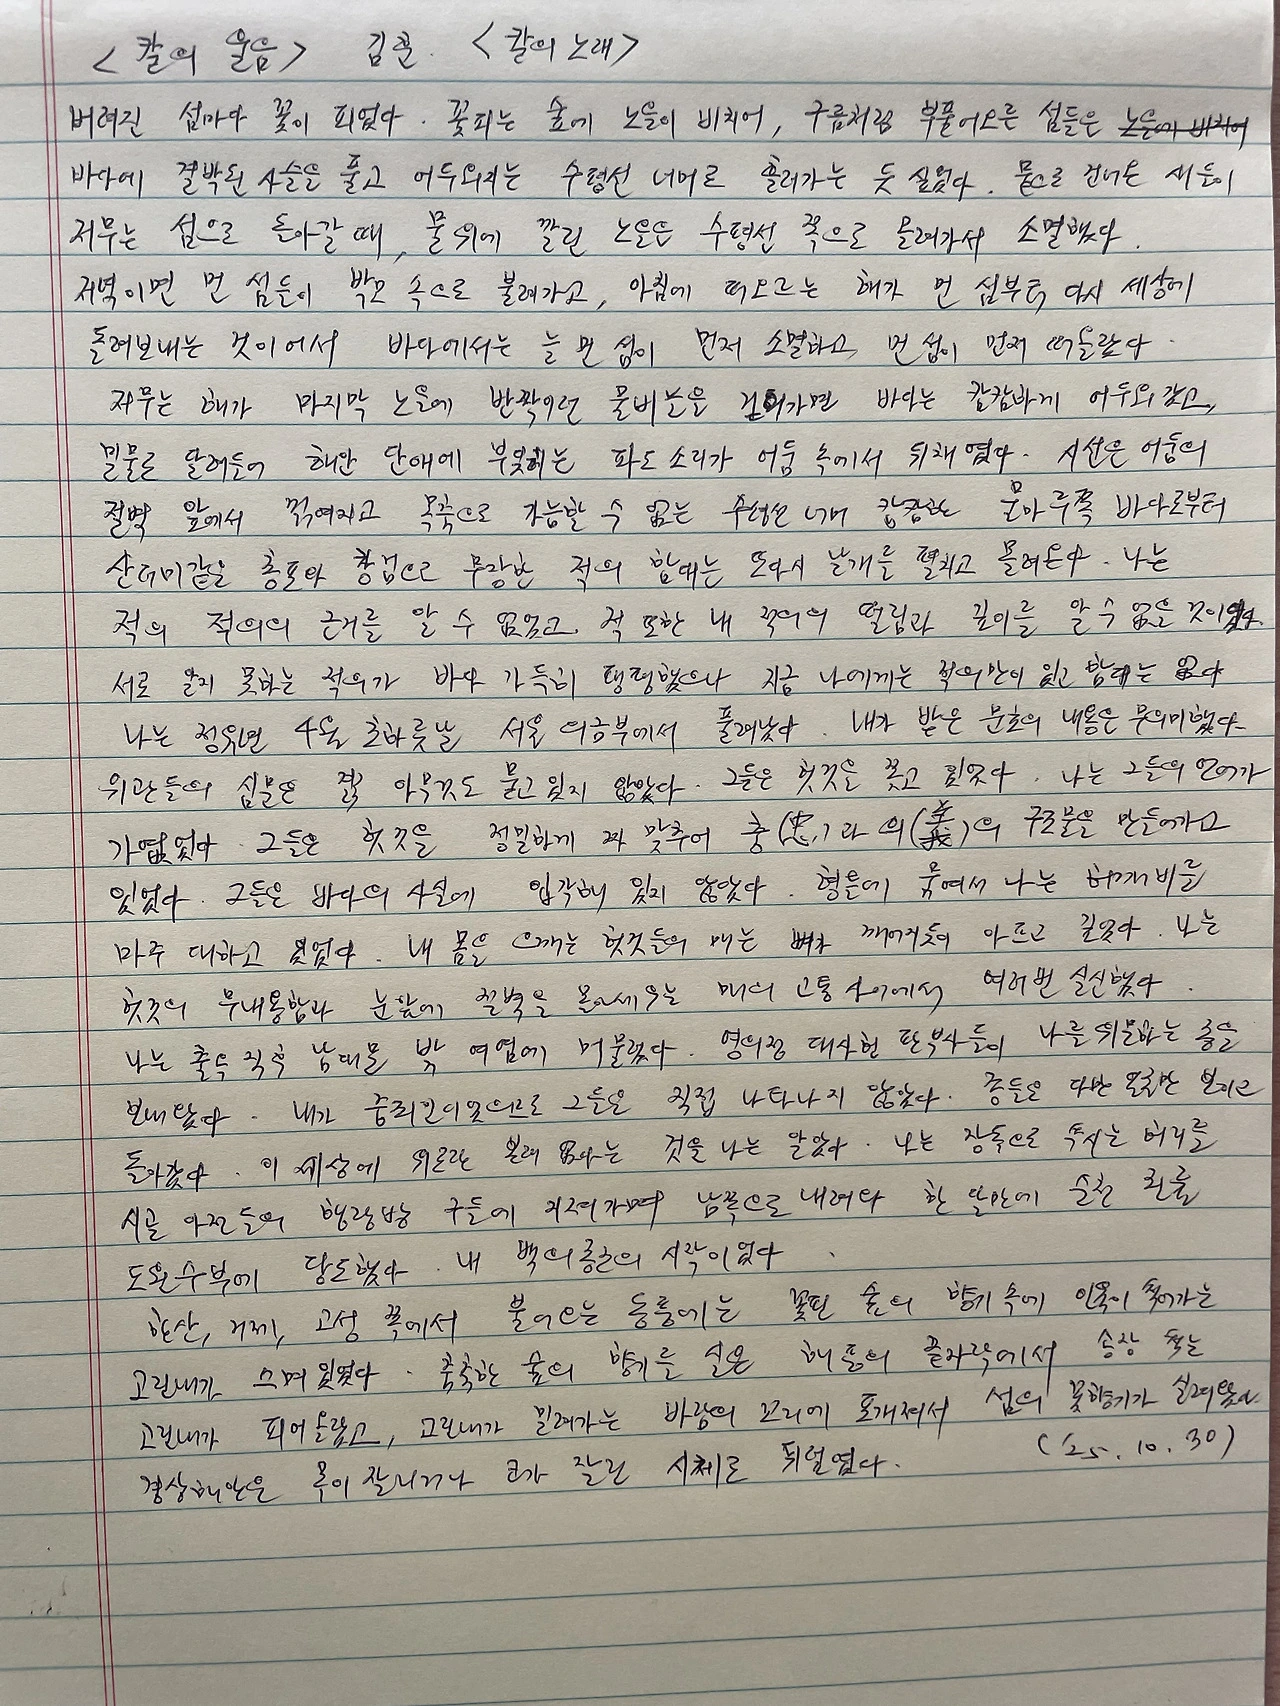 <칼의 울음> 김훈. <칼의 노래>
버려진 섬마다 꽃이 피었다. 꽃피는 숲에 노을이 비치어, 구름처럼 부풀어오른 섬들은 노을에 비치어
바다에 결박된 사슬을 풀고 어두워지는 수평선 너머로 흘러가는 듯 싶었다. 뭍으로 건너온 새들이
저무는 섬으로 돌아갈 때, 물 위에 깔린 노을은 수평선 쪽으로 몰려가서 소멸했다.
저녁이면 먼 섬들이 박모 속으로 불려가고, 아침에 떠오르는 해가 먼 섬부터 다시 세상에
돌려보내는 것이어서 바다에서는 늘 먼 섬이 먼저 소멸하고 먼 섬이 먼저 떠올랐다.
저무는 해가 마지막 노을에 반짝이던 물비늘을 걷어가면 바다는 캄캄하게 어두워갔고,
밀물로 달려들어 해안 단애에 부딪히는 파도 소리가 어둠 속에서 뒤채였다. 시선은 어둠의
절벽 앞에서 꺾여지고 목측으로 가늠할 수 없는 수평선 너머 캄캄한 물마루쪽 바다로부터
산더미같은 총포와 창검으로 무장한 적의 함대는 또다시 날개를 펼치고 몰려온다. 나는
적의 적의의 근거를 알 수 없었고 적 또한 내 적의의 떨림과 깊이를 알 수 없을 것이었다.
서로 알지 못하는 적의가 바다 가득히 팽팽했으나 지금 나에게는 적의만이 있고 함대는 없다
나는 정유년 4월 초하룻날 서울 의금부에서 풀려났다. 내가 받은 문초의 내용은 무의미했다.
위관들의 심문은 결국 아무것도 묻고 있지 않았다. 그들은 헛것을 쫓고 있었다. 나는 그들의 언어가
가엾었다. 그들은 헛것을 정밀하게 짜 맞추어 충(忠)과 의(義)의 구조물을 만들어가고
있었다. 그들은 바다의 사실에 입각해 있지 않았다. 형틀에 묶여서 나는 허깨비를
마주 대하고 있었다. 내 몸을 으깨는 헛것들의 매는 뼈가 깨어지듯이 아프고 깊었다. 나는
헛것의 무내용함과 눈앞에 절벽을 몰아세우는 매의 고통 사이에서 여러번 실신했다.
나는 출옥 직후 남대문 밖 여염에 머물렀다. 영의정 대사헌 판부사들이 나를 위문하는 종을
보내왔다. 내가 중죄인이었으므로 그들은 직접 나타나지 않았다. 종들은 다만 얼굴만 보이고
돌아갔다. 이 세상에 위로란 본래 없다는 것을 나는 알았다. 나는 장독으로 쑤시는 허리를
시골 아전들의 행랑방 구들에 지져가며 남쪽으로 내려와 한 달만에 순천 권율
도원수부에 당도했다. 내 백의종군의 시작이었다.
한산, 거제, 고성 쪽에서 불어오는 동풍에는 꽃핀 숲의 향기 속에 인육이 썩어가는
고린내가 스며있었다. 축축한 숲의 향기를 실은 해풍의 끝자락에서 송장 썩는
고린내가 피어올랐고, 고린내가 밀려가는 바람의 꼬리에 포개져서 섬의 꽃향기가 실려왔다
경상해안은 목이 잘리거나 코가 잘린 시체로 뒤덮였다. (25.10.30)